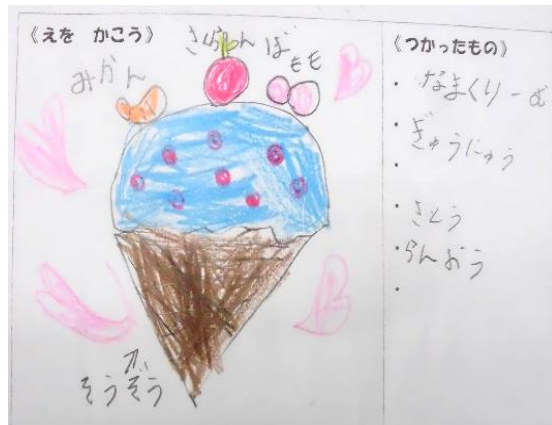 《えを かこう》
さくらんぼ
みかん
もも
そうぞう
《つかったもの》
・なまくりーむ
・ぎゅうにゅう
・
・さとう
・らんおう
・